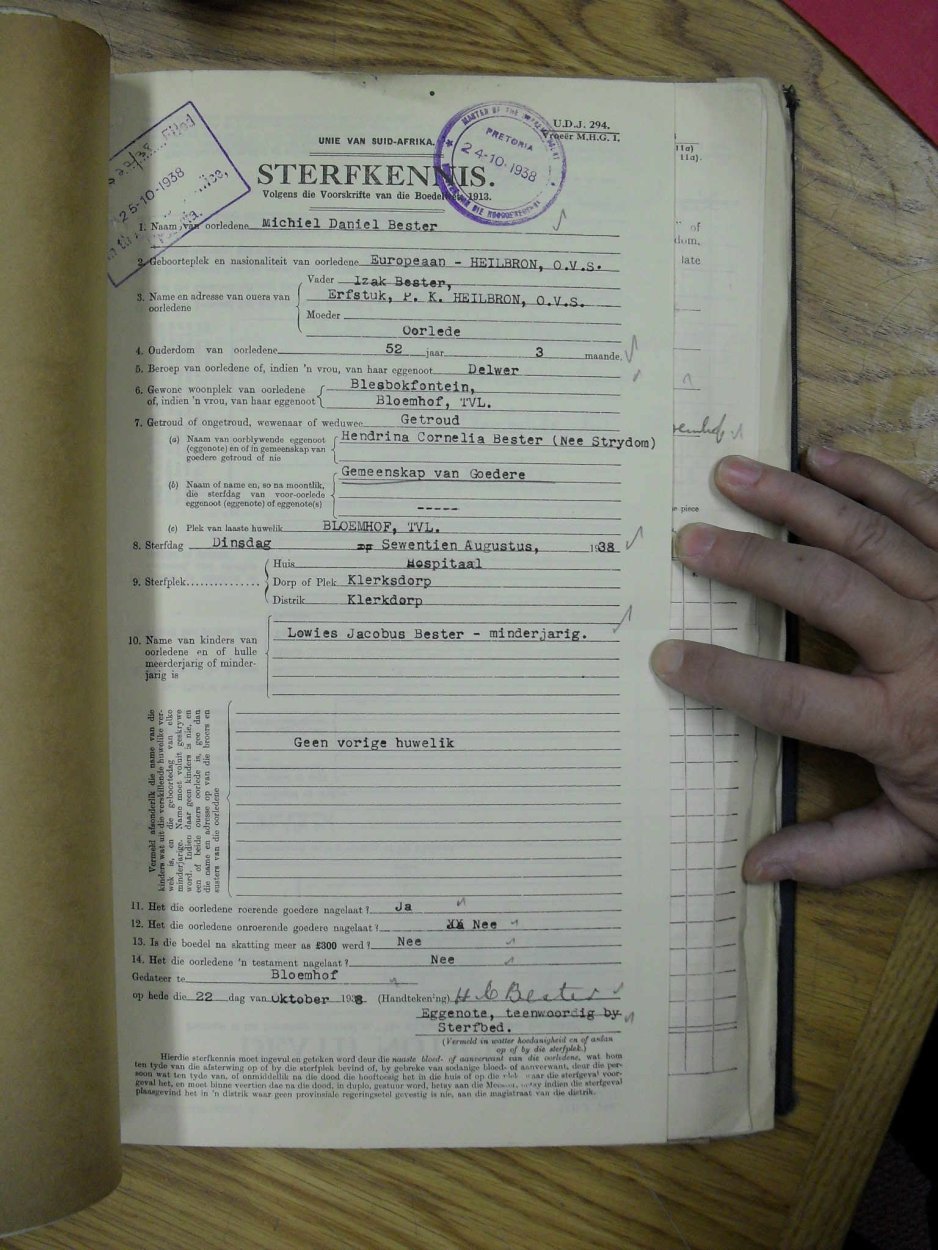 U.D.J. 294.
Vroeër M.H.G. 1.
UNIE VAN SUID-AFRIKA.
STERFKENNIS.
Volgens die Voorskrifte van die Boedelwet, 1913.
PRETORIA
24-10-1938
Filed
25-10-1938
1. Naam van oorledene Michiel Daniel Bester
2. Geboorteplek en nasionaliteit van oorledene Europeaan - HEILBRON, O.V.S.
3. Name en adresse van ouers van oorledene
Vader Izak Bester,
Erfstuk, P. K. HEILBRON, O.V.S.
Moeder
Oorlede
4. Ouderdom van oorledene 52 jaar 3 maande.
5. Beroep van oorledene of, indien 'n vrou, van haar eggenoot Delwer
6. Gewone woonplek van oorledene Blesbokfontein,
of, indien 'n vrou, van haar eggenoot Bloemhof, TVL.
7. Getroud of ongetroud, wewenaar of weduwee Getroud
(a) Naam van oorblywende eggenoot (eggenote) en of in gemeenskap van goedere getroud of nie
Hendrina Cornelia Bester (Nee Strydom)
Gemeenskap van Goedere
(b) Naam of name en, so na moontlik, die sterfdag van voor-oorlede eggenoot (eggenote) of eggenote(s)
-----
(c) Plek van laaste huwelik BLOEMHOF, TVL.
8. Sterfdag Dinsdag Sewentien Augustus, 1938
9. Sterfplek
Huis Hospitaal
Dorp of Plek Klerksdorp
Distrik Klerkdorp
10. Name van kinders van oorledene en of hulle meerderjarig of minderjarig is
Lowies Jacobus Bester - minderjarig.
Vermeld afsonderlik die name van die
kinders wat uit die verskillende huwelike ver-
wek is, en die geboortedag van elke
minderjarige. Name moet voluit geskrywe
word. Indien daar geen kinders is nie, en
een of beide ouers oorlede is, gee dan
die name en adresse op van die broers en
susters van die oorledene
Geen vorige huwelik
11. Het die oorledene roerende goedere nagelaat? Ja
12. Het die oorledene onroerende goedere nagelaat? Nee
13. Is die boedel na skatting meer as £300 werd? Nee
14. Het die oorledene 'n testament nagelaat? Nee
Gedateer te Bloemhof
op hede die 22 dag van Oktober 1938 (Handtekening) H C Bester
Eggenote, teenwoordig by
Sterfbed.
(Vermeld in watter hoedanigheid en of aan/an
op of by die sterfplek.)
Hierdie sterfkennis moet ingevul en geteken word deur die naaste bloed- of aanverwant van die oorledene, wat hom
ten tyde van die afsterwing op of by die sterfplek bevind of, by gebreke van sodanige bloed- of aanverwant, deur die per-
soon wat ten tyde van, of onmiddellik na die dood die hooftoesig het in die huis of op die plek waar die sterfgeval voor-
geval het, en moet binne veertien dae na die dood, in duplo, gestuur word, hetsy aan die Meester, hetsy indien die sterfgeval
plaasgevind het in 'n distrik waar geen provinsiale regeringsetel gevestig is nie, aan die magistraat van die distrik.
11a)
11a).
of
dom,
late
piece